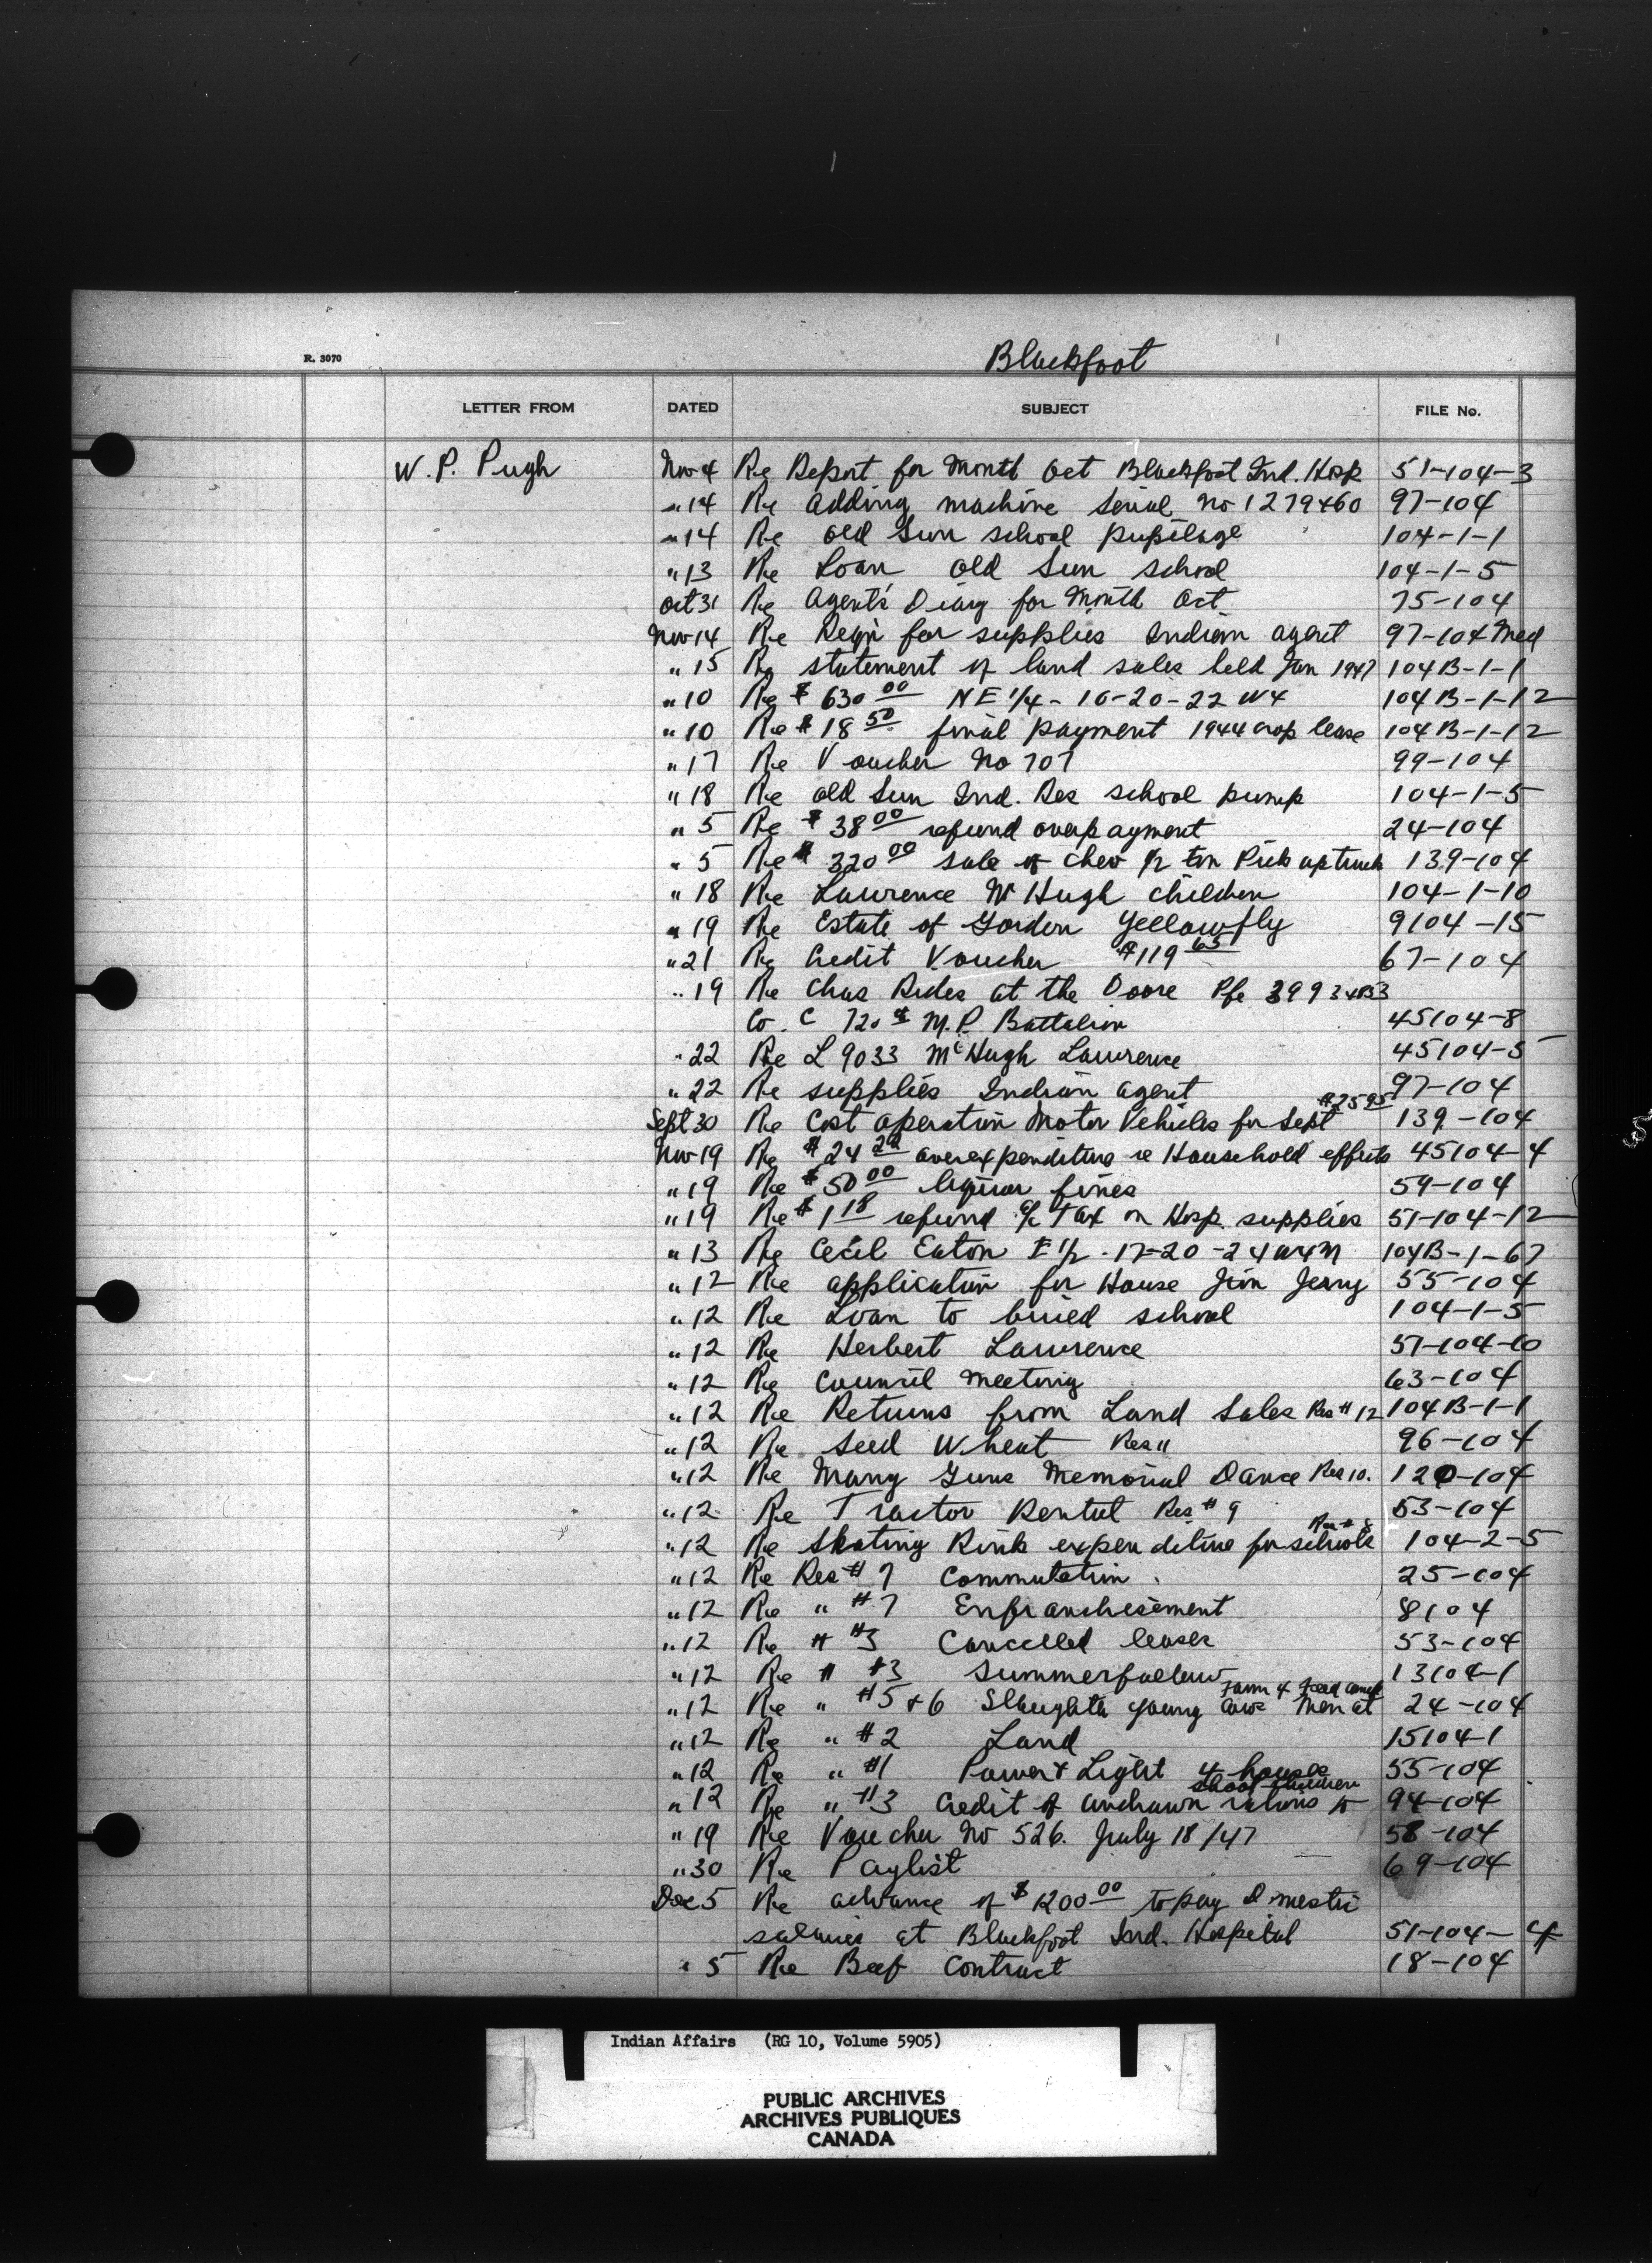 R. 3070
Blackfoot
LETTER FROM DATED SUBJECT FILE No.
W. P. Pugh Nov 4 Re Report for Month Oct Blackfoot Ind. Hosp 51-104-3
" 14 Re adding machine Serial No 1279460 97-104
" 14 Re old Sun school pupilage 104-1-1
" 13 Re Loan old Sun school 104-1-5
Oct 31 Re Agent's Diary for Month Oct 75-104
Nov 14 Re Reqn for supplies Indian agent 97-104 Med
" 15 Re statement of land sales held Jan 1947 104B-1-1
" 10 Re $630 00 NE 1/4 - 16-20-22 W4 104B-1-12
" 10 Re $18 50 final payment 1944 crop lease 104B-1-12
" 17 Re Voucher No 707 99-104
" 18 Re old Sun Ind. Res school pump 104-1-5
" 5 Re $38 00 refund overpayment 24-104
" 5 Re $320 00 sale of Chev 1/2 ton Pick up truck 139-104
" 18 Re Lawrence Mc Hugh children 104-1-10
" 19 Re Estate of Gordon Yellowfly 9104-15
" 21 Re Credit Voucher $119 65 67-104
" 19 Re Chas Rides at the Doore Pfc
Co. C 720 M.P. Battalion 45104-8
" 22 Re L 9033 McHugh Lawrence 45104-5
" 22 Re supplies Indian agent 97-104
Sept 30 Re Cost operation Motor Vehicles for Sept $25 95 139-104
Nov 19 Re $24 overexpenditure re Household effects 45104-4
" 19 Re $50 00 liquor fines 59-104
" 19 Re $1 18 refund a/c Tax on Hosp. supplies 51-104-12
" 13 Re Cecil Eaton E 1/2 - 17-20-24 W4M 104B-1-67
" 12 Re application for House Jim Jerry 55-104
" 12 Re Loan to school 104-1-5
" 12 Re Herbert Lawrence 57-104-10
" 12 Re Council Meeting 63-104
" 12 Re Returns from Land Sales Res # 12 104B-1-1
" 12 Re Seed Wheat Res 11 96-104
" 12 Re Many Guns Memorial Dance Res 10. 120-104
" 12 Re Tractor Rental Res # 9 53-104
" 12 Re Skating Rink expenditure for schools Res # 8 104-2-5
" 12 Re Res # 7 Commutation 25-104
" 12 Re " # 7 Enfranchisement 8104
" 12 Re " #3 Cancelled leases 53-104
" 12 Re " #3 Summerfallow 13104-1
" 12 Re " #5 + 6 Slaughter young cows Men at Farm + Feed camp 24-104
" 12 Re " #2 Land 15104-1
" 12 Re " #1 Power + Light 4 houses 55-104
" 12 Re " #3 Credit of undrawn rations to school children 94-104
" 19 Re Voucher No 526. July 18/47 58-104
" 30 Re Paylist 69-104
Dec 5 Re advance of $1200 00 to pay Domestic
salaries at Blackfoot Ind. Hospital 51-104-4
" 5 Re Beef Contract 18-104
Indian Affairs (RG 10, Volume 5905)
PUBLIC ARCHIVES
ARCHIVES PUBLIQUES
CANADA